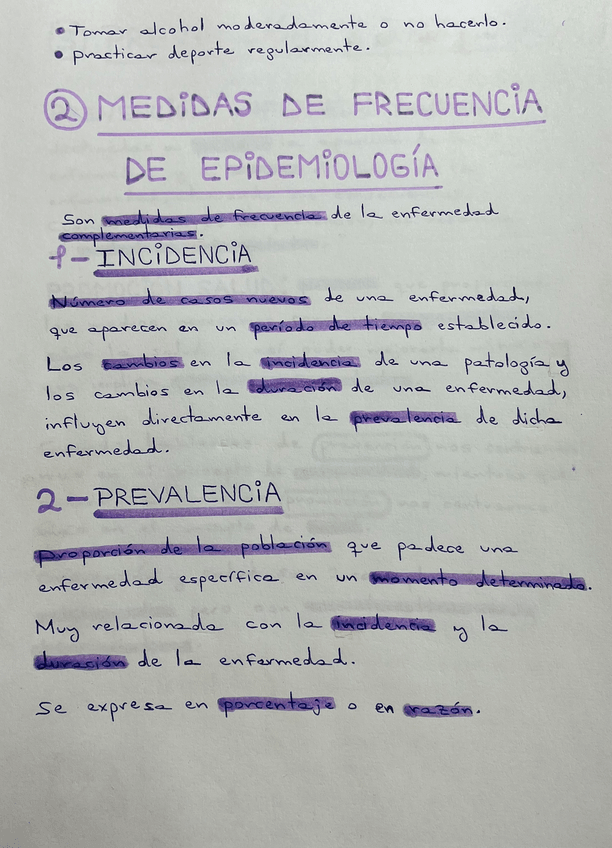 • Tomar alcohol moderadamente o no hacerlo.
• practicar deporte regularmente.
② MEDIDAS DE FRECUENCIA
DE EPIDEMIOLOGÍA
Son medidas de frecuencia de la enfermedad
complementarias.
1- INCIDENCIA
Número de casos nuevos de una enfermedad,
que aparecen en un período de tiempo establecido.
Los cambios en la incidencia de una patología y
los cambios en la duración de una enfermedad,
influyen directamente en la prevalencia de dicha
enfermedad.
2- PREVALENCIA
Proporción de la población que padece una
enfermedad específica en un momento determinado.
Muy relacionada con la incidencia y la
duración de la enfermedad.
Se expresa en porcentaje o en razón.